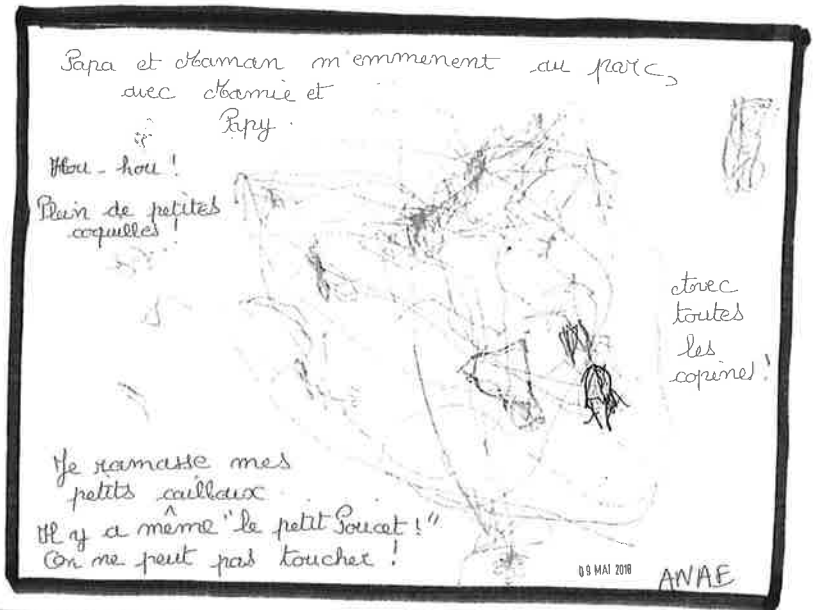 Papa et Maman m'emmenent au parc,
avec Mamie et
Papy.
Hou-hou !
Plein de petites
coquilles !
Avec
toutes
les
copines !
Je ramasse mes
petits cailloux
Il y a même "le petit Poucet !"
On ne peut pas toucher !
09 MAI 2018
ANAE